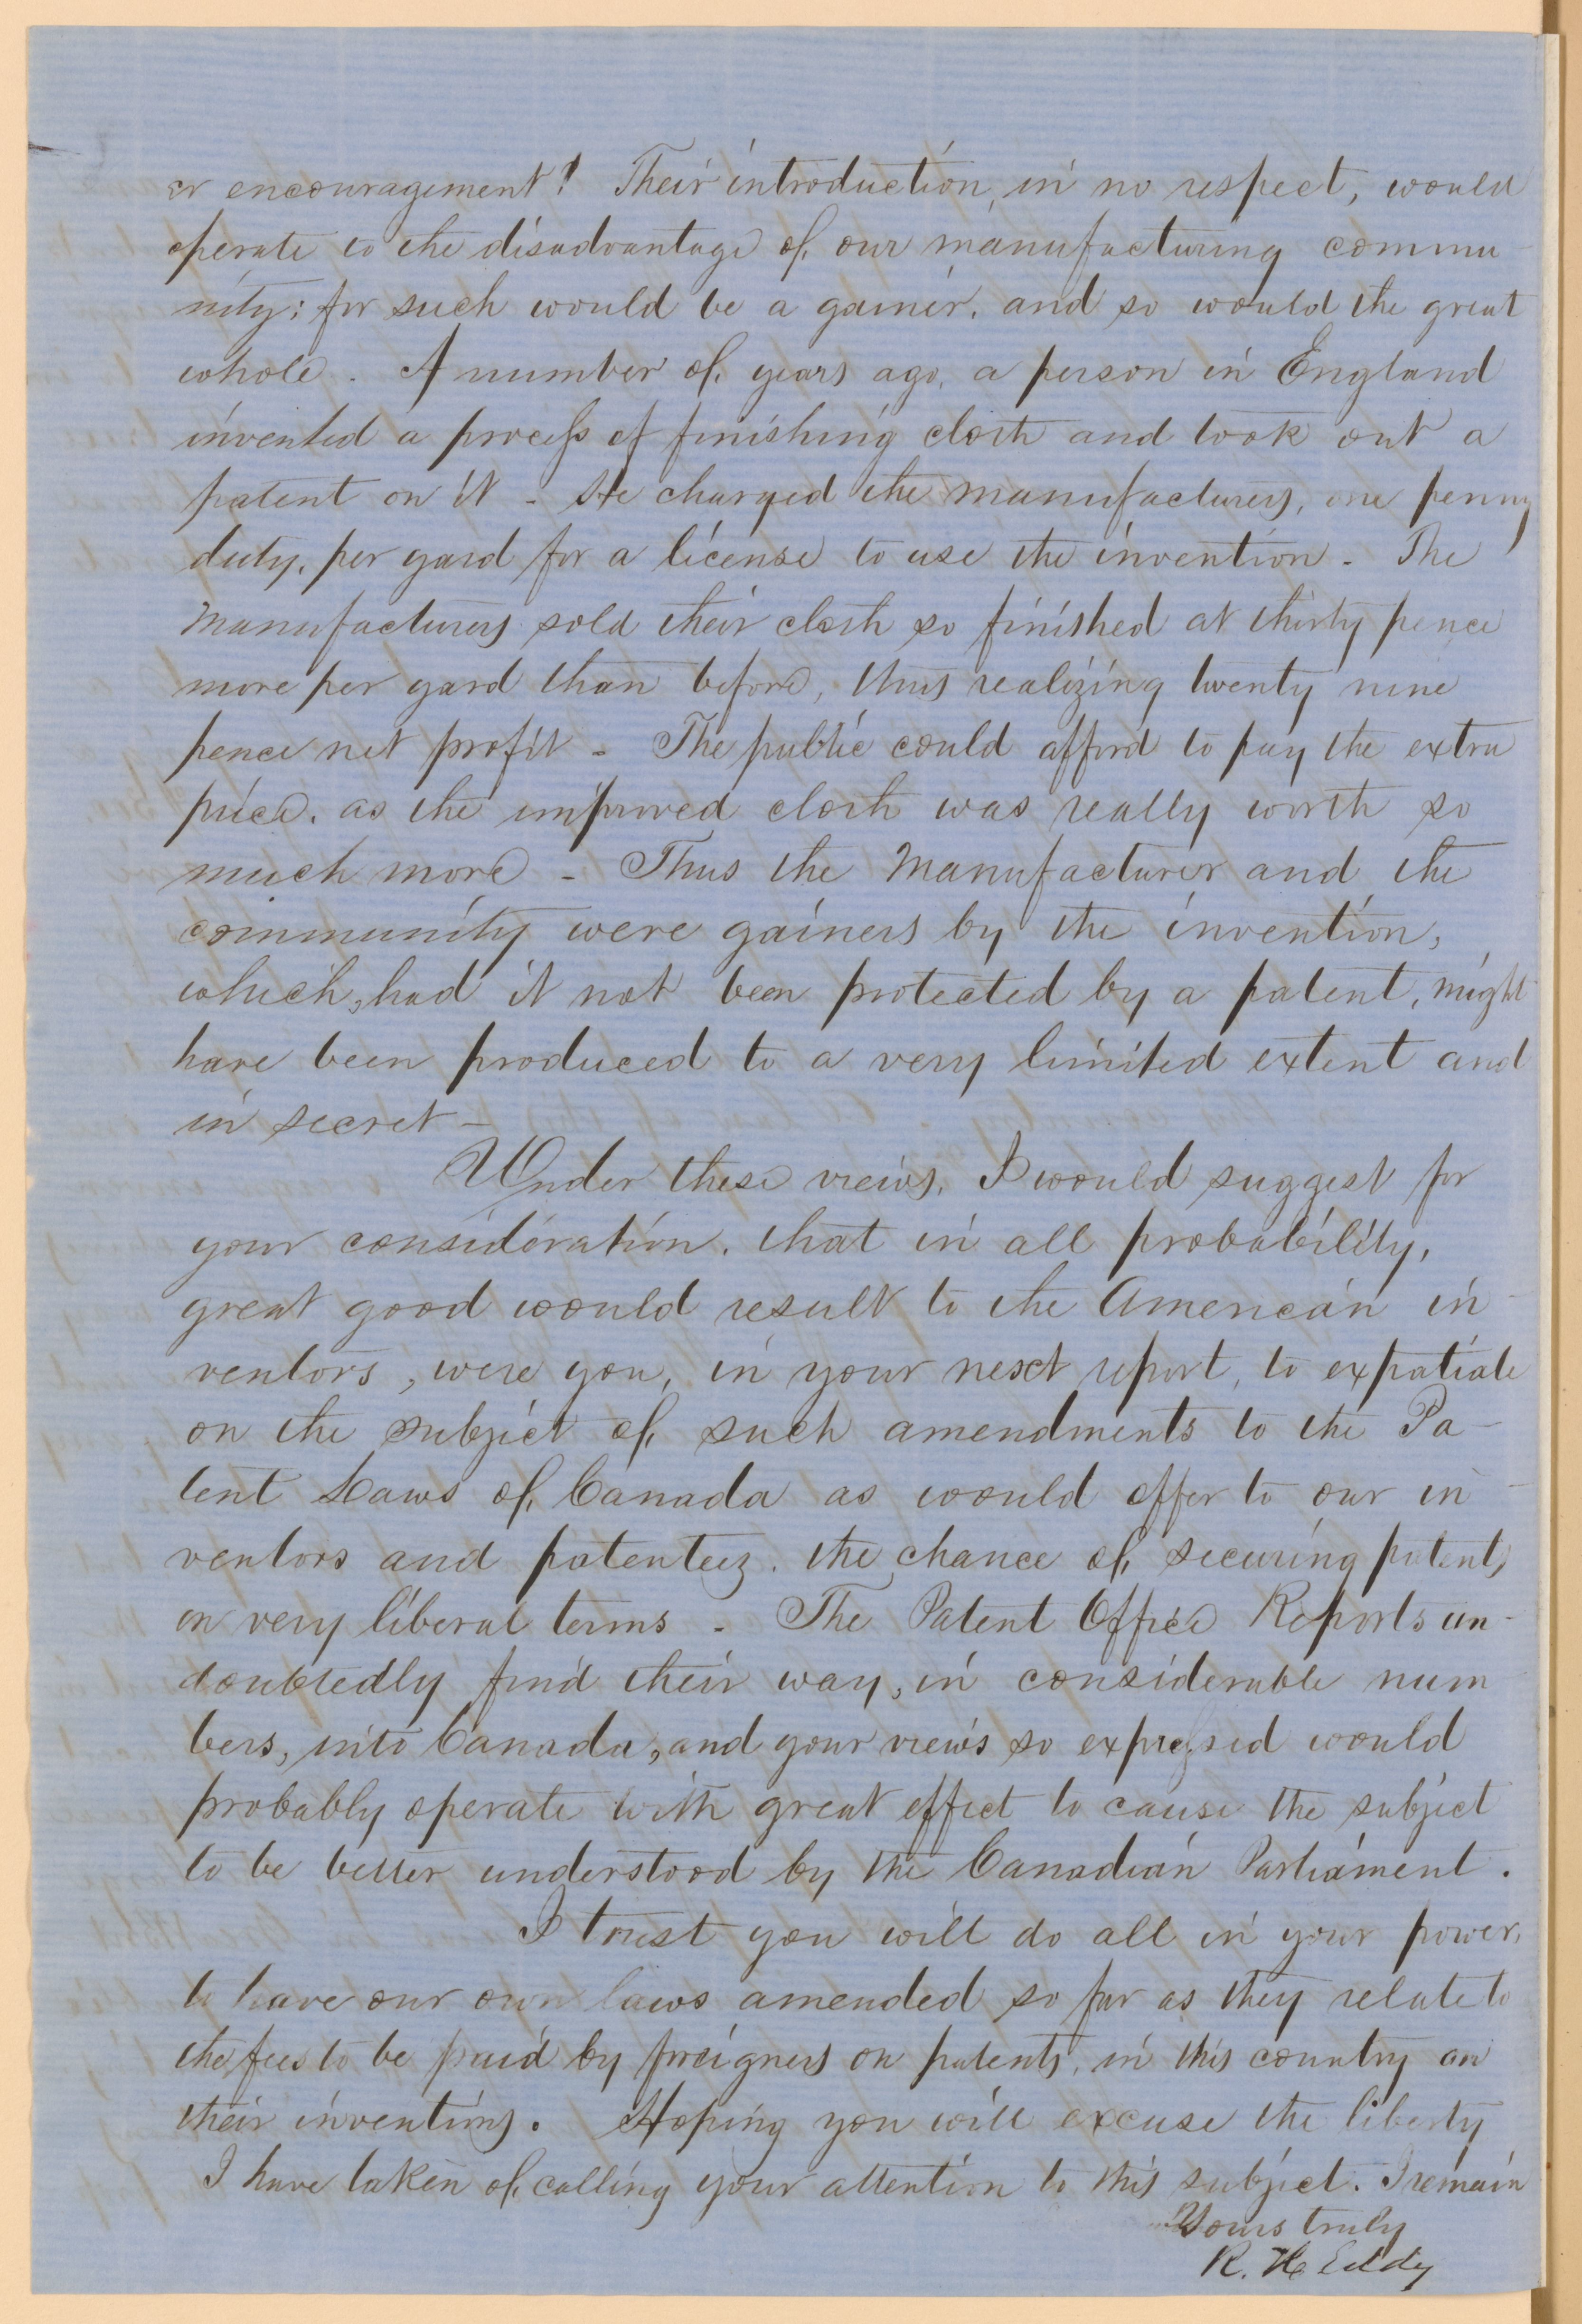 or encouragement! Their introduction, in no respect, would
operate to the disadvantage of, our manufacturing commu
nity; for such would be a gainer, and so would the great
whole. A number of, years ago, a person in England
invented a process of finishing cloth and took out a
patent on it - He charged the manufacturers, one penny
duty, per yard for a license to use the invention - The
manufacturers sold their cloth so finished at thirty pence
more per yard than before, thus realizing twenty nine
pence net profit - The public could afford to pay the extra
price, as the improved cloth was really worth so
much more - Thus the manufacturer and the
community were gainers by the invention,
which, had it not been protected by a patent, might
have been produced to a very limited extent and
in secret -
Under these views, I would suggest for
your consideration, that in all probability,
great good would result to the American in-
ventors, were you, in your next report, to expatiate
on the subject of, such amendments to the Pa-
tent Laws of, Canada as would offer to our in-
ventors and patentees, the chance of, securing patents
on very liberal terms - The Patent Office Reports un-
doubtedly find their way, in considerable num
bers, into Canada, and your views so expressed would
probably operate with great effect to cause the subject
to be better understood by the Canadian Parliament.
I trust you will do all in your power,
to have our own laws amended so far as they relate to
the fees to be paid by foreigners on patents, in this country on
their inventions. Hoping you will excuse the liberty
I have taken of, calling your attention to this subject. I remain
Yours truly
R. H. Eddy